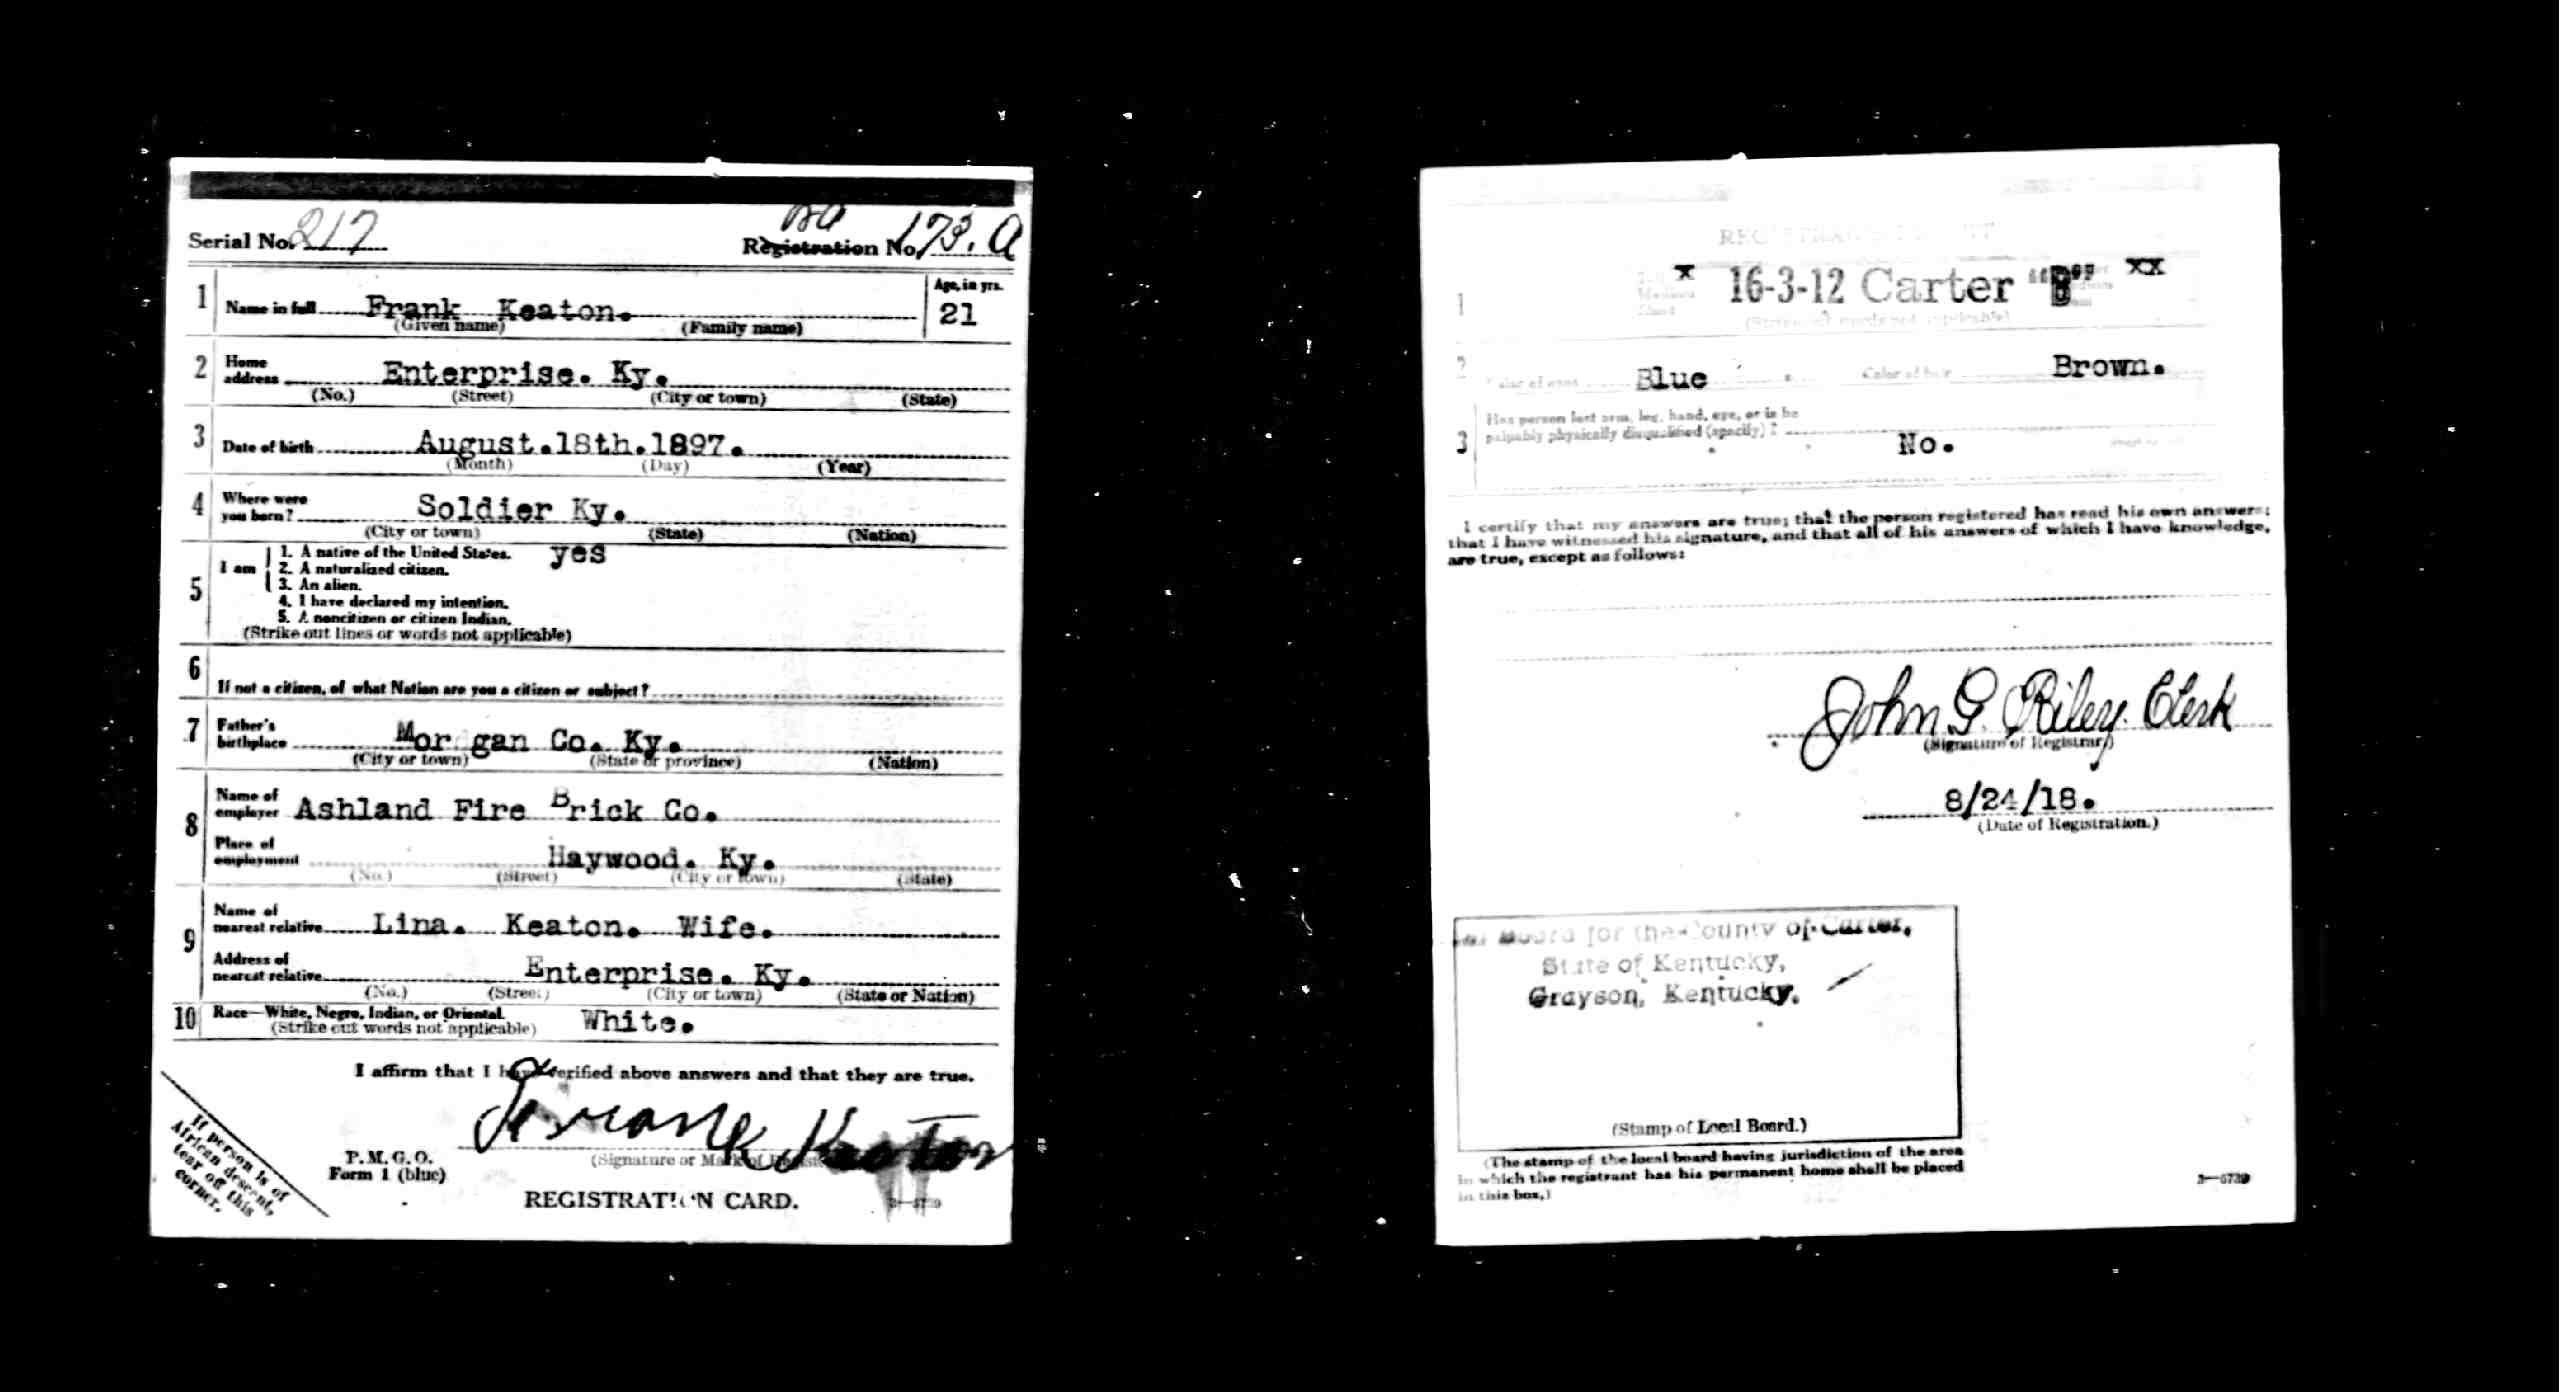 Serial No. 217
Registration No. 173. A
1 Name in full Frank Keaton. Age, in yrs. 21
(Given name) (Family name)
2 Home address Enterprise. Ky.
(No.) (Street) (City or town) (State)
3 Date of birth August.18th.1897.
(Month) (Day) (Year)
4 Where were you born? Soldier Ky.
(City or town) (State) (Nation)
5 I am 1. A native of the United States. yes
2. A naturalized citizen.
3. An alien.
4. I have declared my intention.
5. A noncitizen or citizen Indian.
(Strike out lines or words not applicable)
6 If not a citizen, of what Nation are you a citizen or subject?
7 Father's birthplace Mor gan Co. Ky.
(City or town) (State or province) (Nation)
8 Name of employer Ashland Fire Brick Co.
Place of employment Haywood. Ky.
(No.) (Street) (City or town) (State)
9 Name of nearest relative Lina. Keaton. Wife.
Address of nearest relative Enterprise. Ky.
(No.) (Street) (City or town) (State or Nation)
10 Race—White, Negro, Indian, or Oriental. White.
(Strike out words not applicable)
I affirm that I have verified above answers and that they are true.
Frank Keaton
(Signature or Mark of
If person is of
African descent,
tear off this
corner.
P. M. G. O.
Form 1 (blue)
REGISTRATION CARD.
1 x 16-3-12 Carter "B" xx
(Strike out words not applicable)
2 Color of eyes Blue Color of hair Brown.
3 Has person lost arm, leg, hand, eye, or is he
palpably physically disqualified (specify)? No.
I certify that my answers are true; that the person registered has read his own answers;
that I have witnessed his signature, and that all of his answers of which I have knowledge,
are true, except as follows:
John G. Riley. Clerk
(Signature of Registrar)
8/24/18.
(Date of Registration.)
Board for the County of Carter,
State of Kentucky,
Grayson, Kentucky.
(Stamp of Local Board.)
(The stamp of the local board having jurisdiction of the area
in which the registrant has his permanent home shall be placed
in this box.)
3—6739